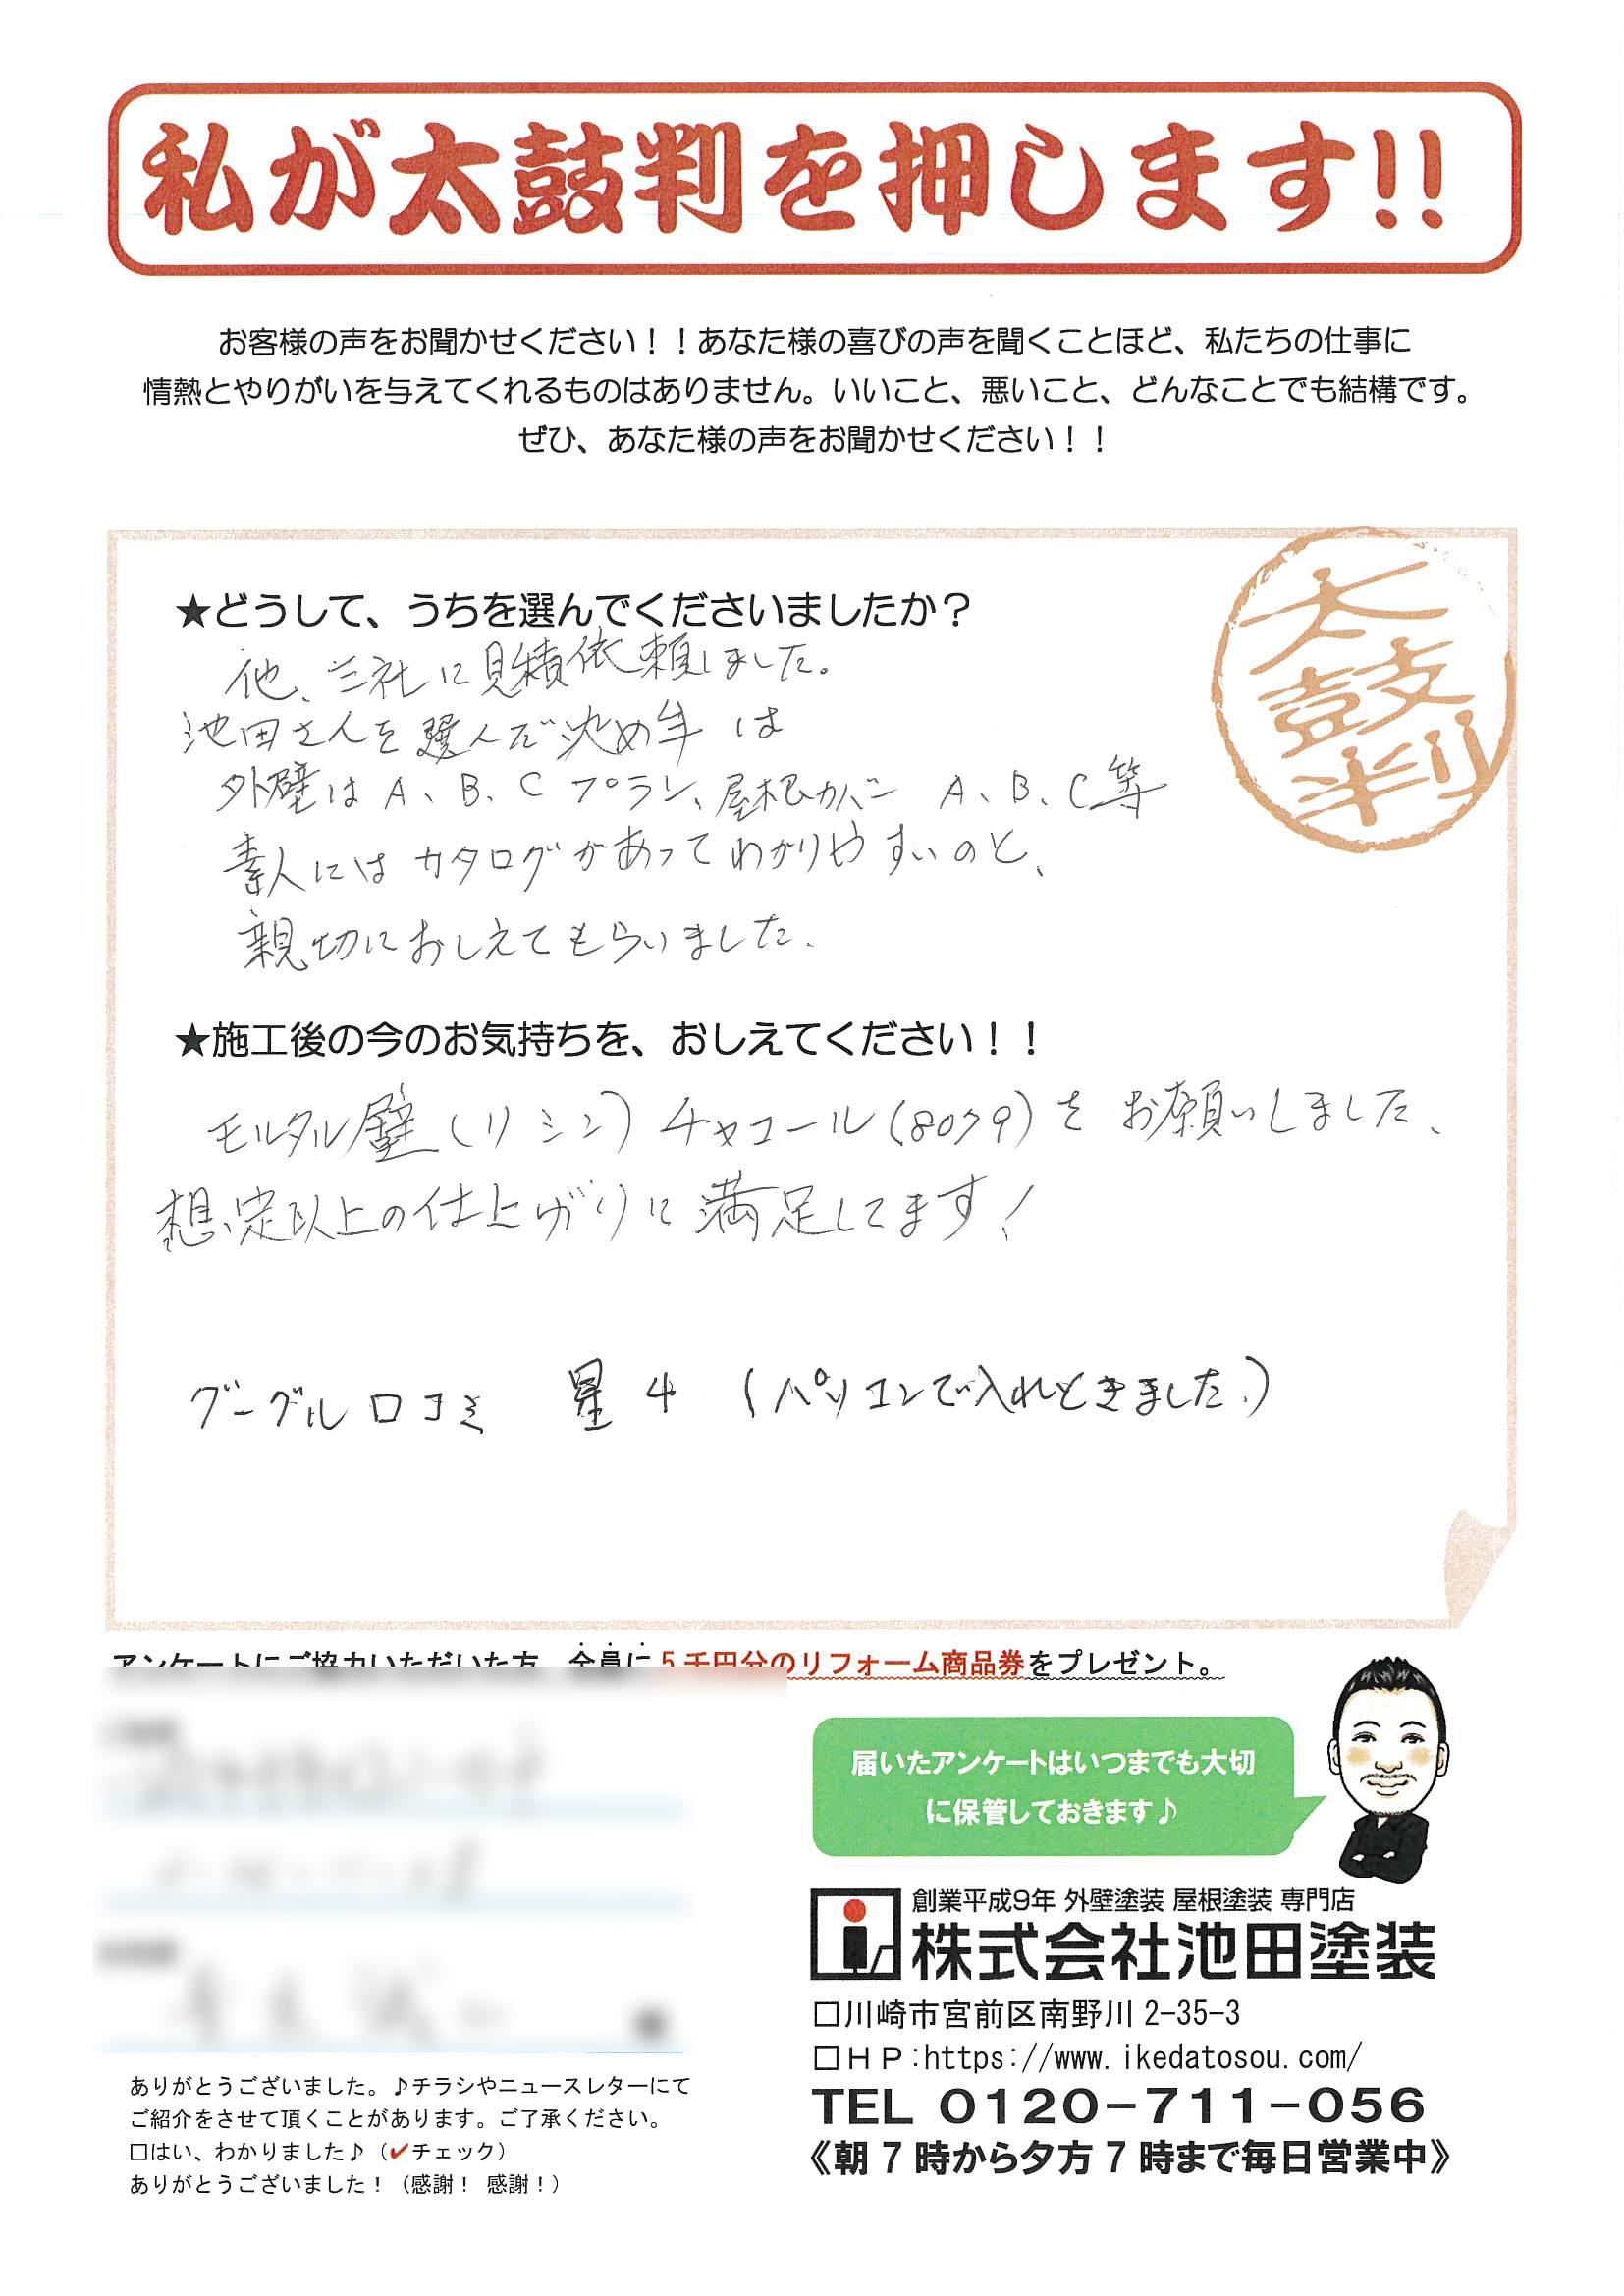 私が太鼓判を押します!!
お客様の声をお聞かせください！！あなた様の喜びの声を聞くことほど、私たちの仕事に
情熱とやりがいを与えてくれるものはありません。いいこと、悪いこと、どんなことでも結構です。
ぜひ、あなた様の声をお聞かせください！！
太鼓判
★どうして、うちを選んでくださいましたか？
他、三社に見積依頼しました。
池田さんを選んだ決め手は
外壁はA、B、Cプラン、屋根カバー A、B、C等
素人にはカタログがあってわかりやすいのと、
親切におしえてもらいました。
★施工後の今のお気持ちを、おしえてください！！
モルタル壁(リシン)チャコール(8079)をお願いしました、
想定以上の仕上がりに満足してます！
グーグル口コミ 星4 (パソコンで入れときました。)
アンケートにご協力いただいた方、全員に5千円分のリフォーム商品券をプレゼント。
届いたアンケートはいつまでも大切
に保管しておきます♪
創業平成9年 外壁塗装 屋根塗装 専門店
株式会社池田塗装
□川崎市宮前区南野川2-35-3
□ＨＰ:https://www.ikedatosou.com/
TEL 0120-711-056
《朝7時から夕方7時まで毎日営業中》
ありがとうございました。♪チラシやニュースレターにて
ご紹介をさせて頂くことがあります。ご了承ください。
□はい、わかりました♪（✔チェック）
ありがとうございました！（感謝！ 感謝！）